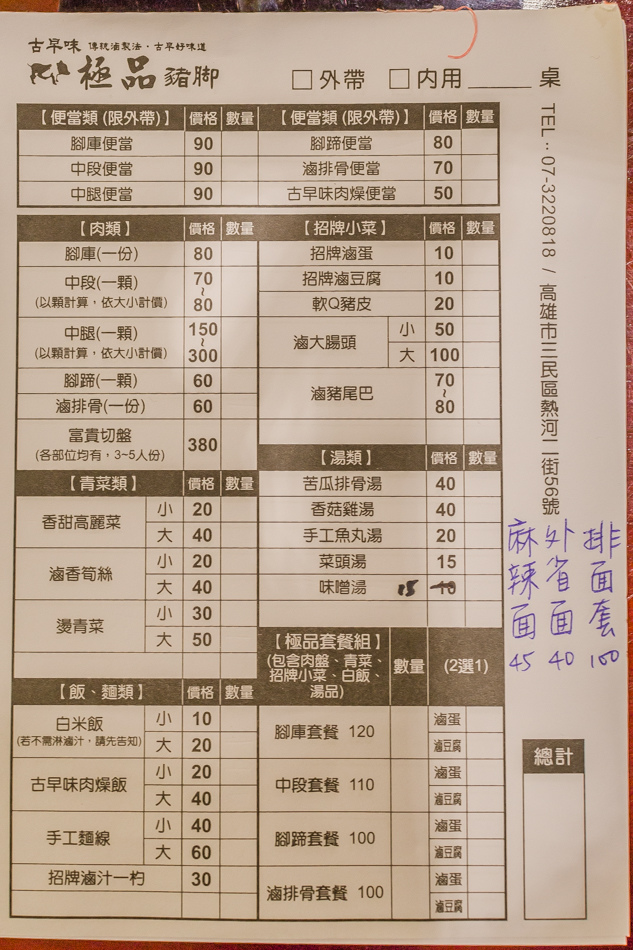 古早味 傳統滷製法·古早好味道
極品豬脚
□外帶 □內用______桌
TEL：07-3220818 / 高雄市三民區熱河二街56號
【便當類(限外帶)】 價格 數量
腳庫便當 90
中段便當 90
中腿便當 90
【便當類(限外帶)】 價格 數量
腳蹄便當 80
滷排骨便當 70
古早味肉燥便當 50
【肉類】 價格 數量
腳庫(一份) 80
中段(一顆) 70~80
(以顆計算，依大小計價)
中腿(一顆) 150~300
(以顆計算，依大小計價)
腳蹄(一顆) 60
滷排骨(一份) 60
富貴切盤 380
(各部位均有，3~5人份)
【招牌小菜】 價格 數量
招牌滷蛋 10
招牌滷豆腐 10
軟Q豬皮 20
滷大腸頭 小 50
大 100
滷豬尾巴 70~80
【湯類】 價格 數量
苦瓜排骨湯 40
香菇雞湯 40
手工魚丸湯 20
菜頭湯 15
味噌湯 15 10
【青菜類】 價格 數量
香甜高麗菜 小 20
大 40
滷香筍絲 小 20
大 40
燙青菜 小 30
大 50
【飯、麵類】 價格 數量
白米飯 小 10
(若不需淋滷汁，請先告知) 大 20
古早味肉燥飯 小 20
大 40
手工麵線 小 40
大 60
招牌滷汁一杓 30
【極品套餐組】 數量 (2選1)
(包含肉盤、青菜、
招牌小菜、白飯、
湯品)
腳庫套餐 120 滷蛋
滷豆腐
中段套餐 110 滷蛋
滷豆腐
腳蹄套餐 100 滷蛋
滷豆腐
滷排骨套餐 100 滷蛋
滷豆腐
排面套 100
外省面 40
麻辣面 45
總計